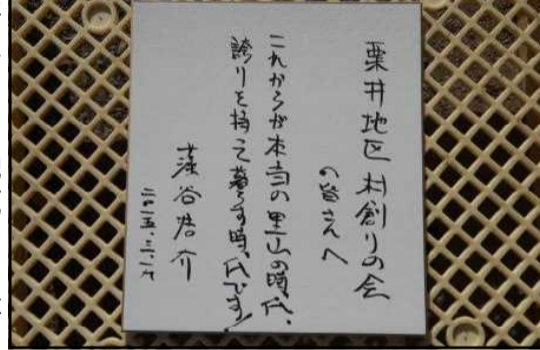 粟井地区村創りの会
の皆さんへ
これからが本当の里山の時代、
誇りを持って暮らす時代です!
藻谷浩介
二〇一五、三、一九